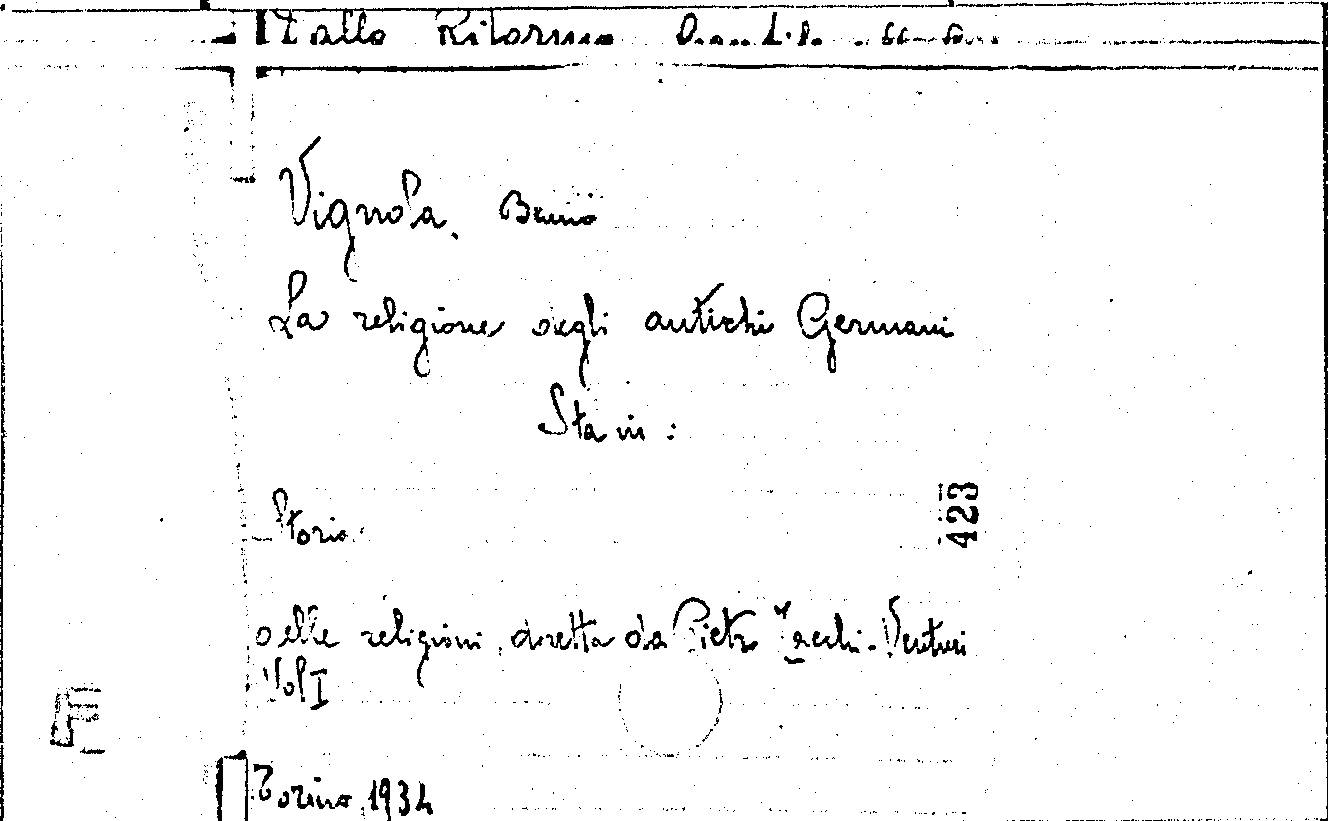 Vignola, Bruno
La religione degli antichi Germani
Sta in:
Storia
423
delle religioni, diretta da Pietro Tacchi-Venturi
Vol I
Torino, 1934